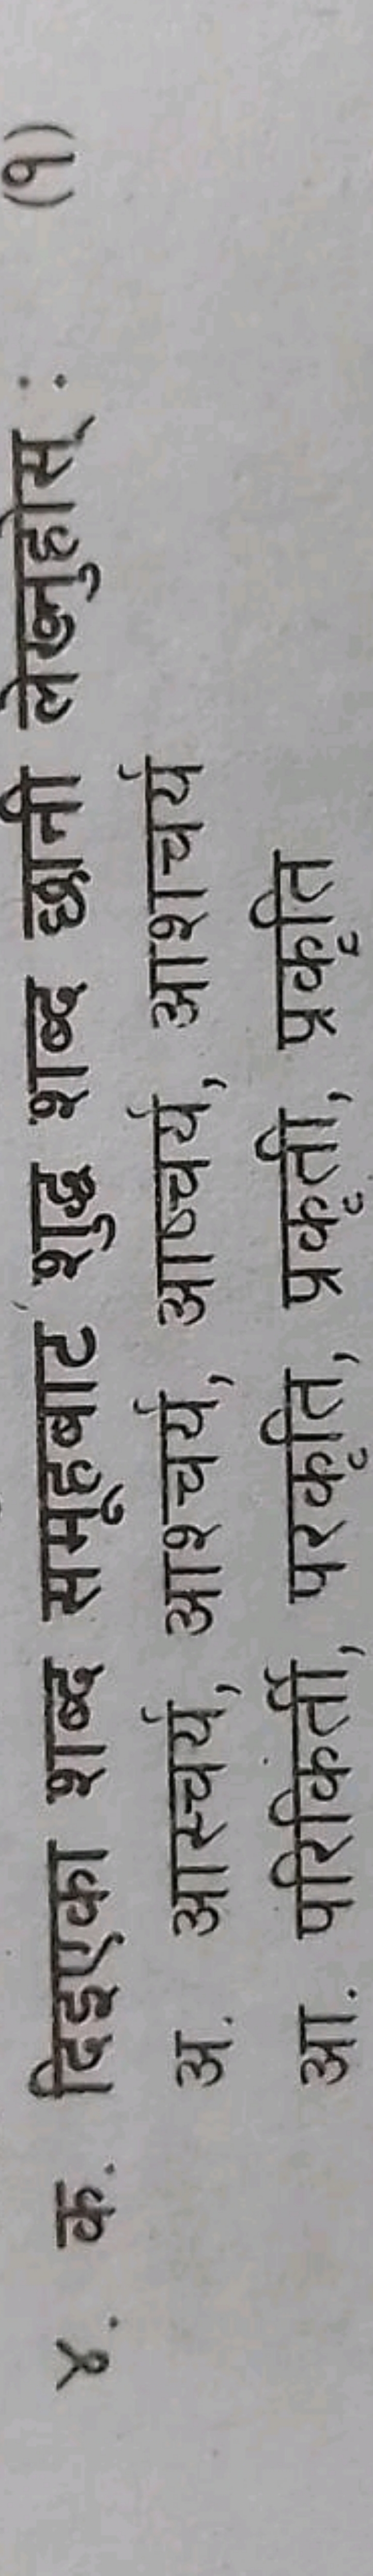 ४. क. दिइएका शब्द समूहबाट शुद्ध शब्द छानी लेख्नुहोस् : (१)
अ. आस्चर्य, आश्चर्य, आष्चर्य, आशचर्य
आ. परिकिर्ती, परकृति, प्रकृती, प्रकृति